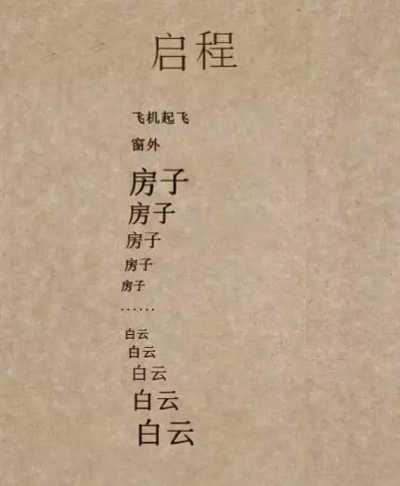 启程
飞机起飞
窗外
房子
房子
房子
房子
房子
······
白云
白云
白云
白云
白云